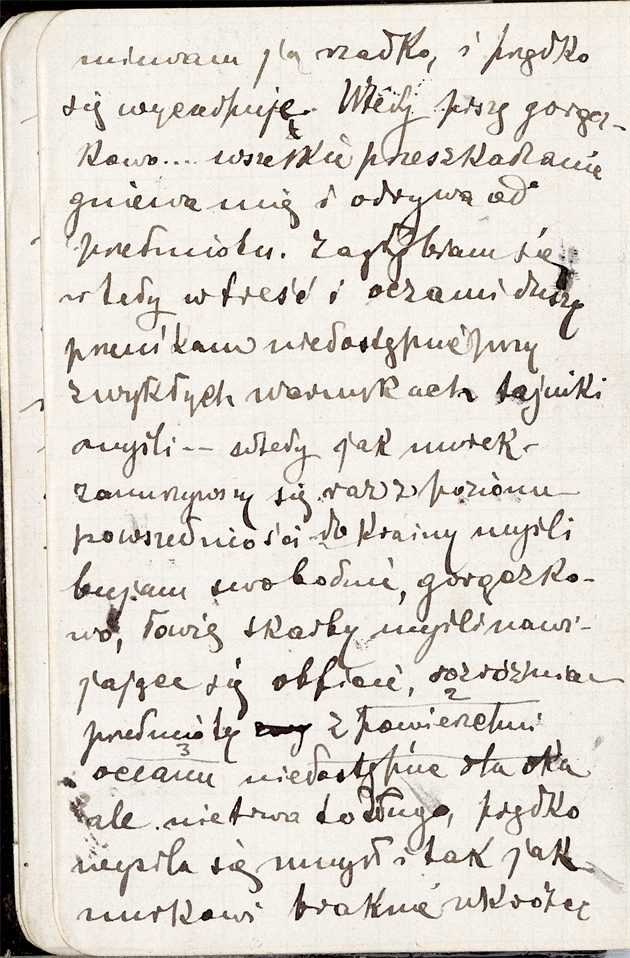 miewam ją rzadko, i prędko
się wyczerpuję. Wtedy piszę gorącz-
kowo... wszelkie przeszkadzanie
gniewa mię i odrywa od
przedmiotu. Zagłębiam się
wtedy w treść i oczami duszy
przenikam niedostępne przy
zwykłych warunkach tajniki
myśli -- wtedy jak nurek
zanurzywszy się raz z poziomu
powszedniości do krainy myśli
bujam swobodnie, gorączko-
wo, łowię skarby myśli nawi-
jające się obficie, rozróżniam
2
przedmioty z powierzchni
3
oceanu niedostępne dla oka
ale nie trwa to długo, prędko
wysila się umysł i tak jak
nurkowi braknie wkrótce